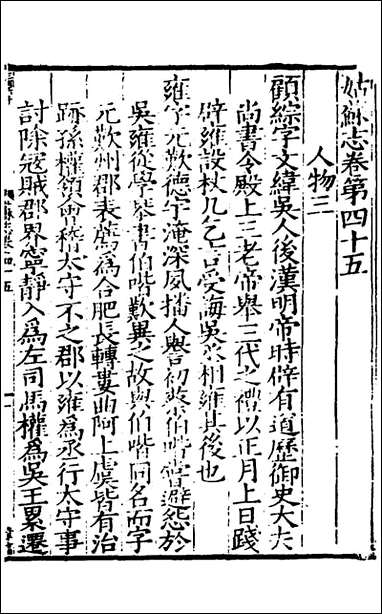 姑蘇志卷第四十五
人物三
顧綜字文緯吳人後漢明帝時辟有道歷御史大夫
尚書令殿上三老帝舉三代之禮以正月上日踐
辟雍設杖几乞言受誨吳丞相雍其後也
雍字元歎德宇淹深夙播人譽初蔡伯喈嘗避怨於
吳雍從學琴書伯喈歎異之故與伯喈同名而字
元歎州郡表薦爲合肥長轉婁曲阿上虞皆有治
跡孫權領會稽太守不之郡以雍為丞行太守事
討除寇賊郡界寧靜入爲左司馬權爲吳王累遷